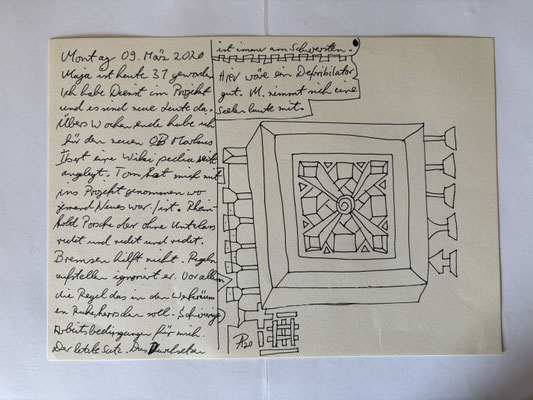 Montag 09. März 2020
Maja ist heute 37 geworden
Ich habe Dienst im Projekt
und es sind neue Leute da.
Übers Wochenende habe ich
für den neuen OB Markus
Ibert eine Wikipedia Seite
angelegt. Tom hat mich mit
ins Projekt genommen wo
jemand Neues war / ist. Rhein-
hold Porsche der ohne Unterlass
redet und redet und redet.
Bremsen hilft nicht. Regeln
aufstellen ignoriert er. Vor allem
die Regel das in den Werkräum
en Ruhe herrschen soll. Schwierige
Arbeitsbedingungen für mich.
Der letzte Satz. Das Durchsetzen
ist immer am Schwersten.
Hier wäre ein Defibrilator
gut. M. nimmt sich eine
mit.
20